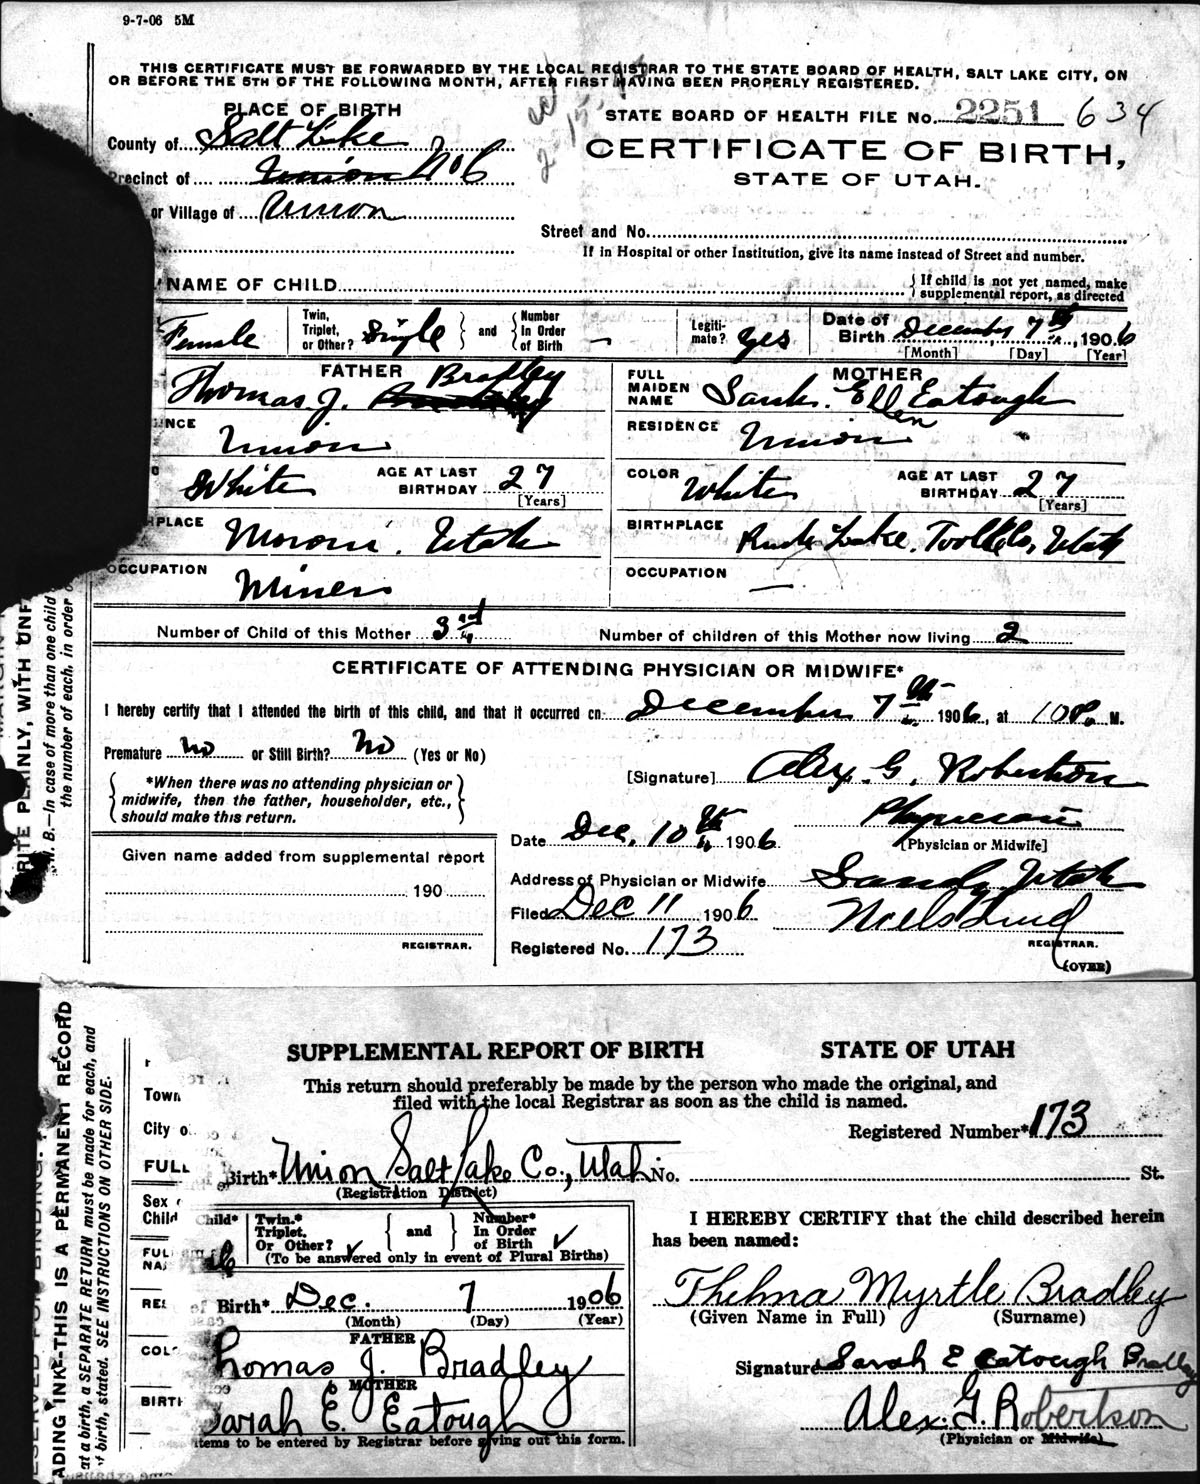 9-7-06 5M
THIS CERTIFICATE MUST BE FORWARDED BY THE LOCAL REGISTRAR TO THE STATE BOARD OF HEALTH, SALT LAKE CITY, ON
OR BEFORE THE 5TH OF THE FOLLOWING MONTH, AFTER FIRST HAVING BEEN PROPERLY REGISTERED.
PLACE OF BIRTH
STATE BOARD OF HEALTH FILE No. 2251 634
County of Salt Lake
CERTIFICATE OF BIRTH,
Precinct of Union No 6
STATE OF UTAH.
or Village of Union
Street and No.
If in Hospital or other Institution, give its name instead of Street and number.
NAME OF CHILD
If child is not yet named, make
supplemental report, as directed
Female
Twin,
Triplet,
or Other? Single
and
Number
In Order
of Birth —
Legiti-
mate? yes
Date of
Birth December, 7th, 1906
[Month] [Day] [Year]
FATHER
Thomas J. Bradley
FULL
MAIDEN
NAME
MOTHER
Sarah Ellen Eatough
NCE Union
RESIDENCE Union
White
AGE AT LAST
BIRTHDAY 27
[Years]
COLOR White
AGE AT LAST
BIRTHDAY 27
[Years]
HPLACE Moroni, Utah
BIRTHPLACE Rush Lake, Utah
OCCUPATION Miner
OCCUPATION —
Number of Child of this Mother 3rd
Number of children of this Mother now living 2
CERTIFICATE OF ATTENDING PHYSICIAN OR MIDWIFE*
I hereby certify that I attended the birth of this child, and that it occurred on December 7th 1906, at 10 P. M.
Premature No or Still Birth? No (Yes or No)
*When there was no attending physician or
midwife, then the father, householder, etc.,
should make this return.
[Signature] Alex. G. Robertson
Physician
[Physician or Midwife]
Date Dec, 10th 1906
Given name added from supplemental report
190
REGISTRAR.
Address of Physician or Midwife Sandy Utah
Filed Dec 11 1906 Niels Lind
REGISTRAR.
Registered No. 173
(OVER)
RITE PLAINLY, WITH UNF
N. B.—In case of more than one child
the number of each, in order
SUPPLEMENTAL REPORT OF BIRTH STATE OF UTAH
This return should preferably be made by the person who made the original, and
filed with the local Registrar as soon as the child is named.
Registered Number* 173
Birth* Union Salt Lake Co., Utah No. St.
(Registration District)
Child*
Twin.*
Triplet.
Or Other?
and
Number*
In Order
of Birth
(To be answered only in event of Plural Births)
Birth* Dec. 7 1906
(Month) (Day) (Year)
FATHER
Thomas J. Bradley
MOTHER
Sarah E. Eatough
items to be entered by Registrar before giving out this form.
I HEREBY CERTIFY that the child described herein
has been named:
Thelma Myrtle Bradley
(Given Name in Full) (Surname)
Signature Sarah E Eatough Bradley
Alex. G. Robertson
(Physician or Midwife)
Town
City o
FULL
Sex
Child
FUL
NA
RES
COL
BIRTH
ADING INK—THIS IS A PERMANENT RECORD
at a birth, a SEPARATE RETURN must be made for each, and
f birth, stated. SEE INSTRUCTIONS ON OTHER SIDE.